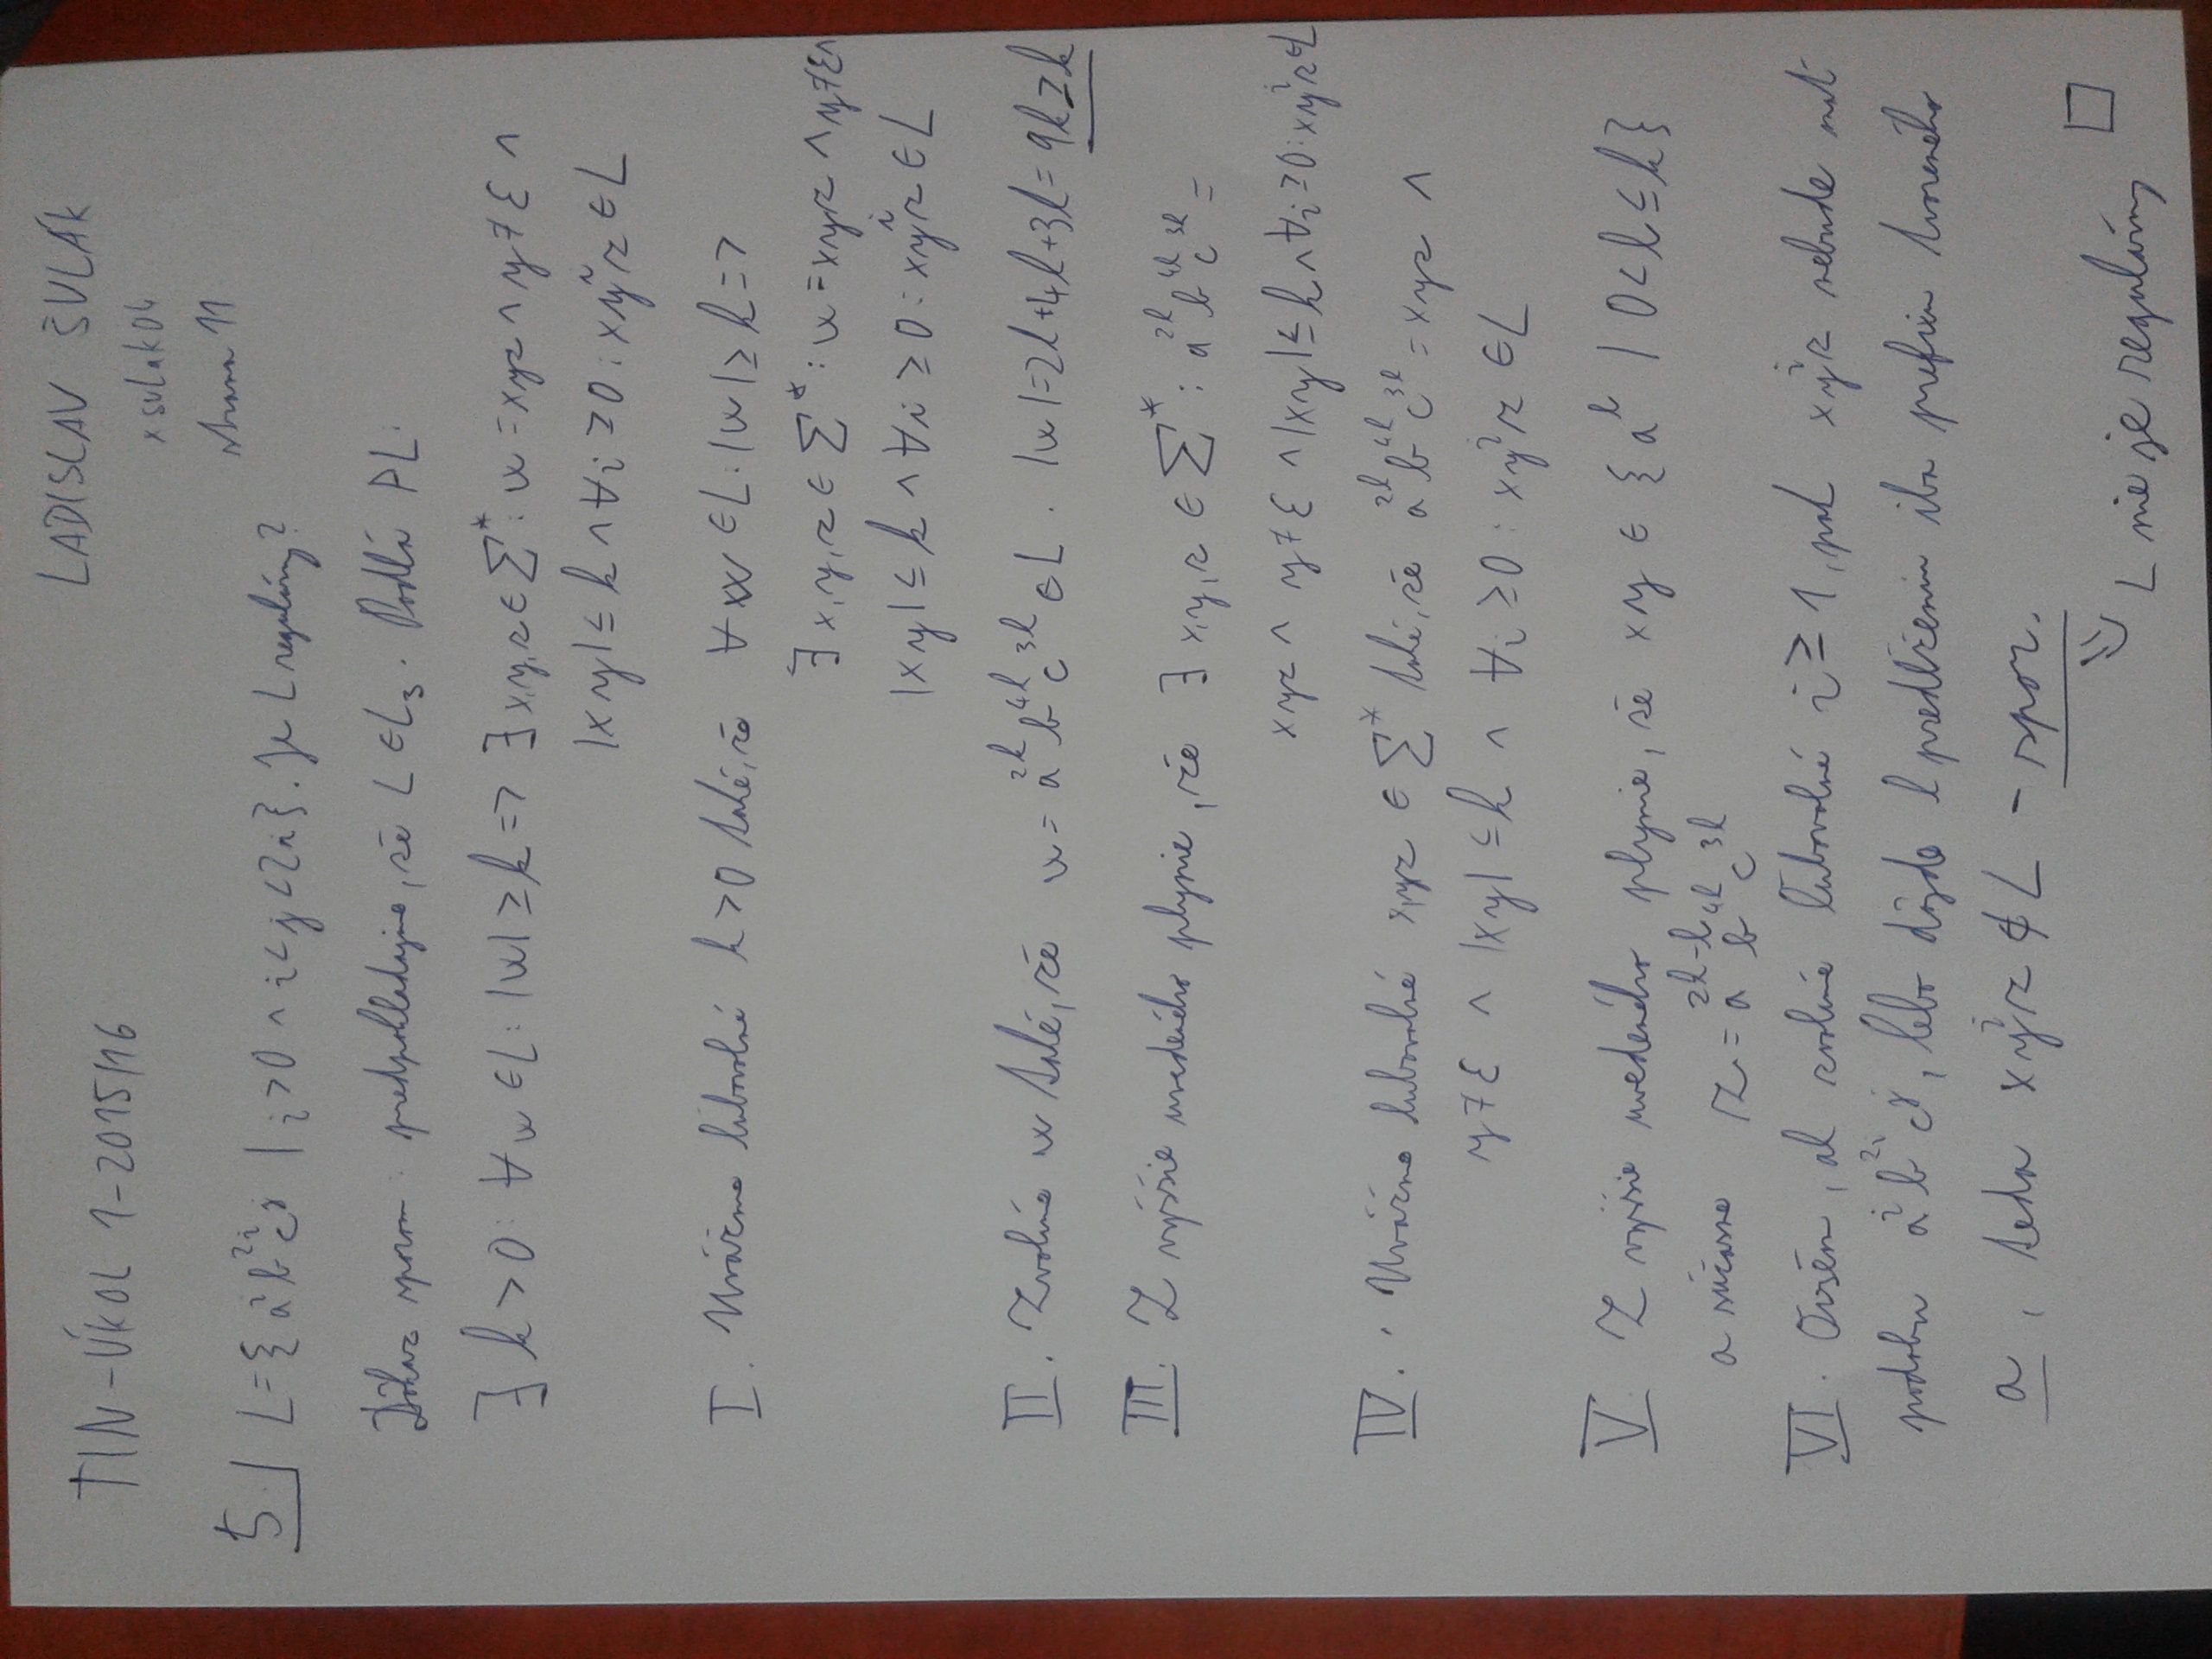 TIN-ÚKOL 1-2015/16
LADISLAV ŠULÁK
xsulak04
strana 11
5. L={aⁱb²ⁱcʲ | i>0 ∧ i<j<2i}. Je L regulárny?
Dôkaz sporom: predpokladajme, že L ∈ L₃. Podľa PL:
∃ k>0: ∀w ∈ L: |w| ≥ k => ∃ x,y,z ∈ Σ*: w=xyz ∧ y≠ε ∧
|xy| ≤ k ∧ ∀i ≥ 0: xyⁱz ∈ L
I. Uvážme ľubovolné k>0 také, že ∀w ∈ L: |w| ≥ k =>
∃ x,y,z ∈ Σ*: w=xyz ∧ y≠ε ∧
|xy| ≤ k ∧ ∀i ≥ 0: xyⁱz ∈ L
II. Zvolíme w také, že w = a²ᵏ b⁴ᵏ c³ᵏ ∈ L. |w|=2k+4k+3k= 9k≥k
III. Z vyššie uvedeného plynie, že ∃ x,y,z ∈ Σ*: a²ᵏ b⁴ᵏ c³ᵏ =
xyz ∧ y≠ε ∧ |xy| ≤ k ∧ ∀i ≥ 0: xyⁱz ∈ L
IV. Uvážme ľubovolné x,y,z ∈ Σ* také, že a²ᵏ b⁴ᵏ c³ᵏ = xyz ∧
y≠ε ∧ |xy| ≤ k ∧ ∀i ≥ 0: xyⁱz ∈ L
V. Z vyššie uvedeného plynie, že xy ∈ {aˡ | 0<l≤k}
a súčasne z = a²ᵏ⁻ˡ b⁴ᵏ c³ᵏ
VI. Ovšem, ak zvolíme ľubovolné i ≥ 1, pak xyⁱz nebude mať
podobu aⁱb²ⁱcʲ, lebo dôjde k predĺženiu iba prefixu tvoreného
a, teda xyⁱz ∉ L - spor.
L nie je regulárny □